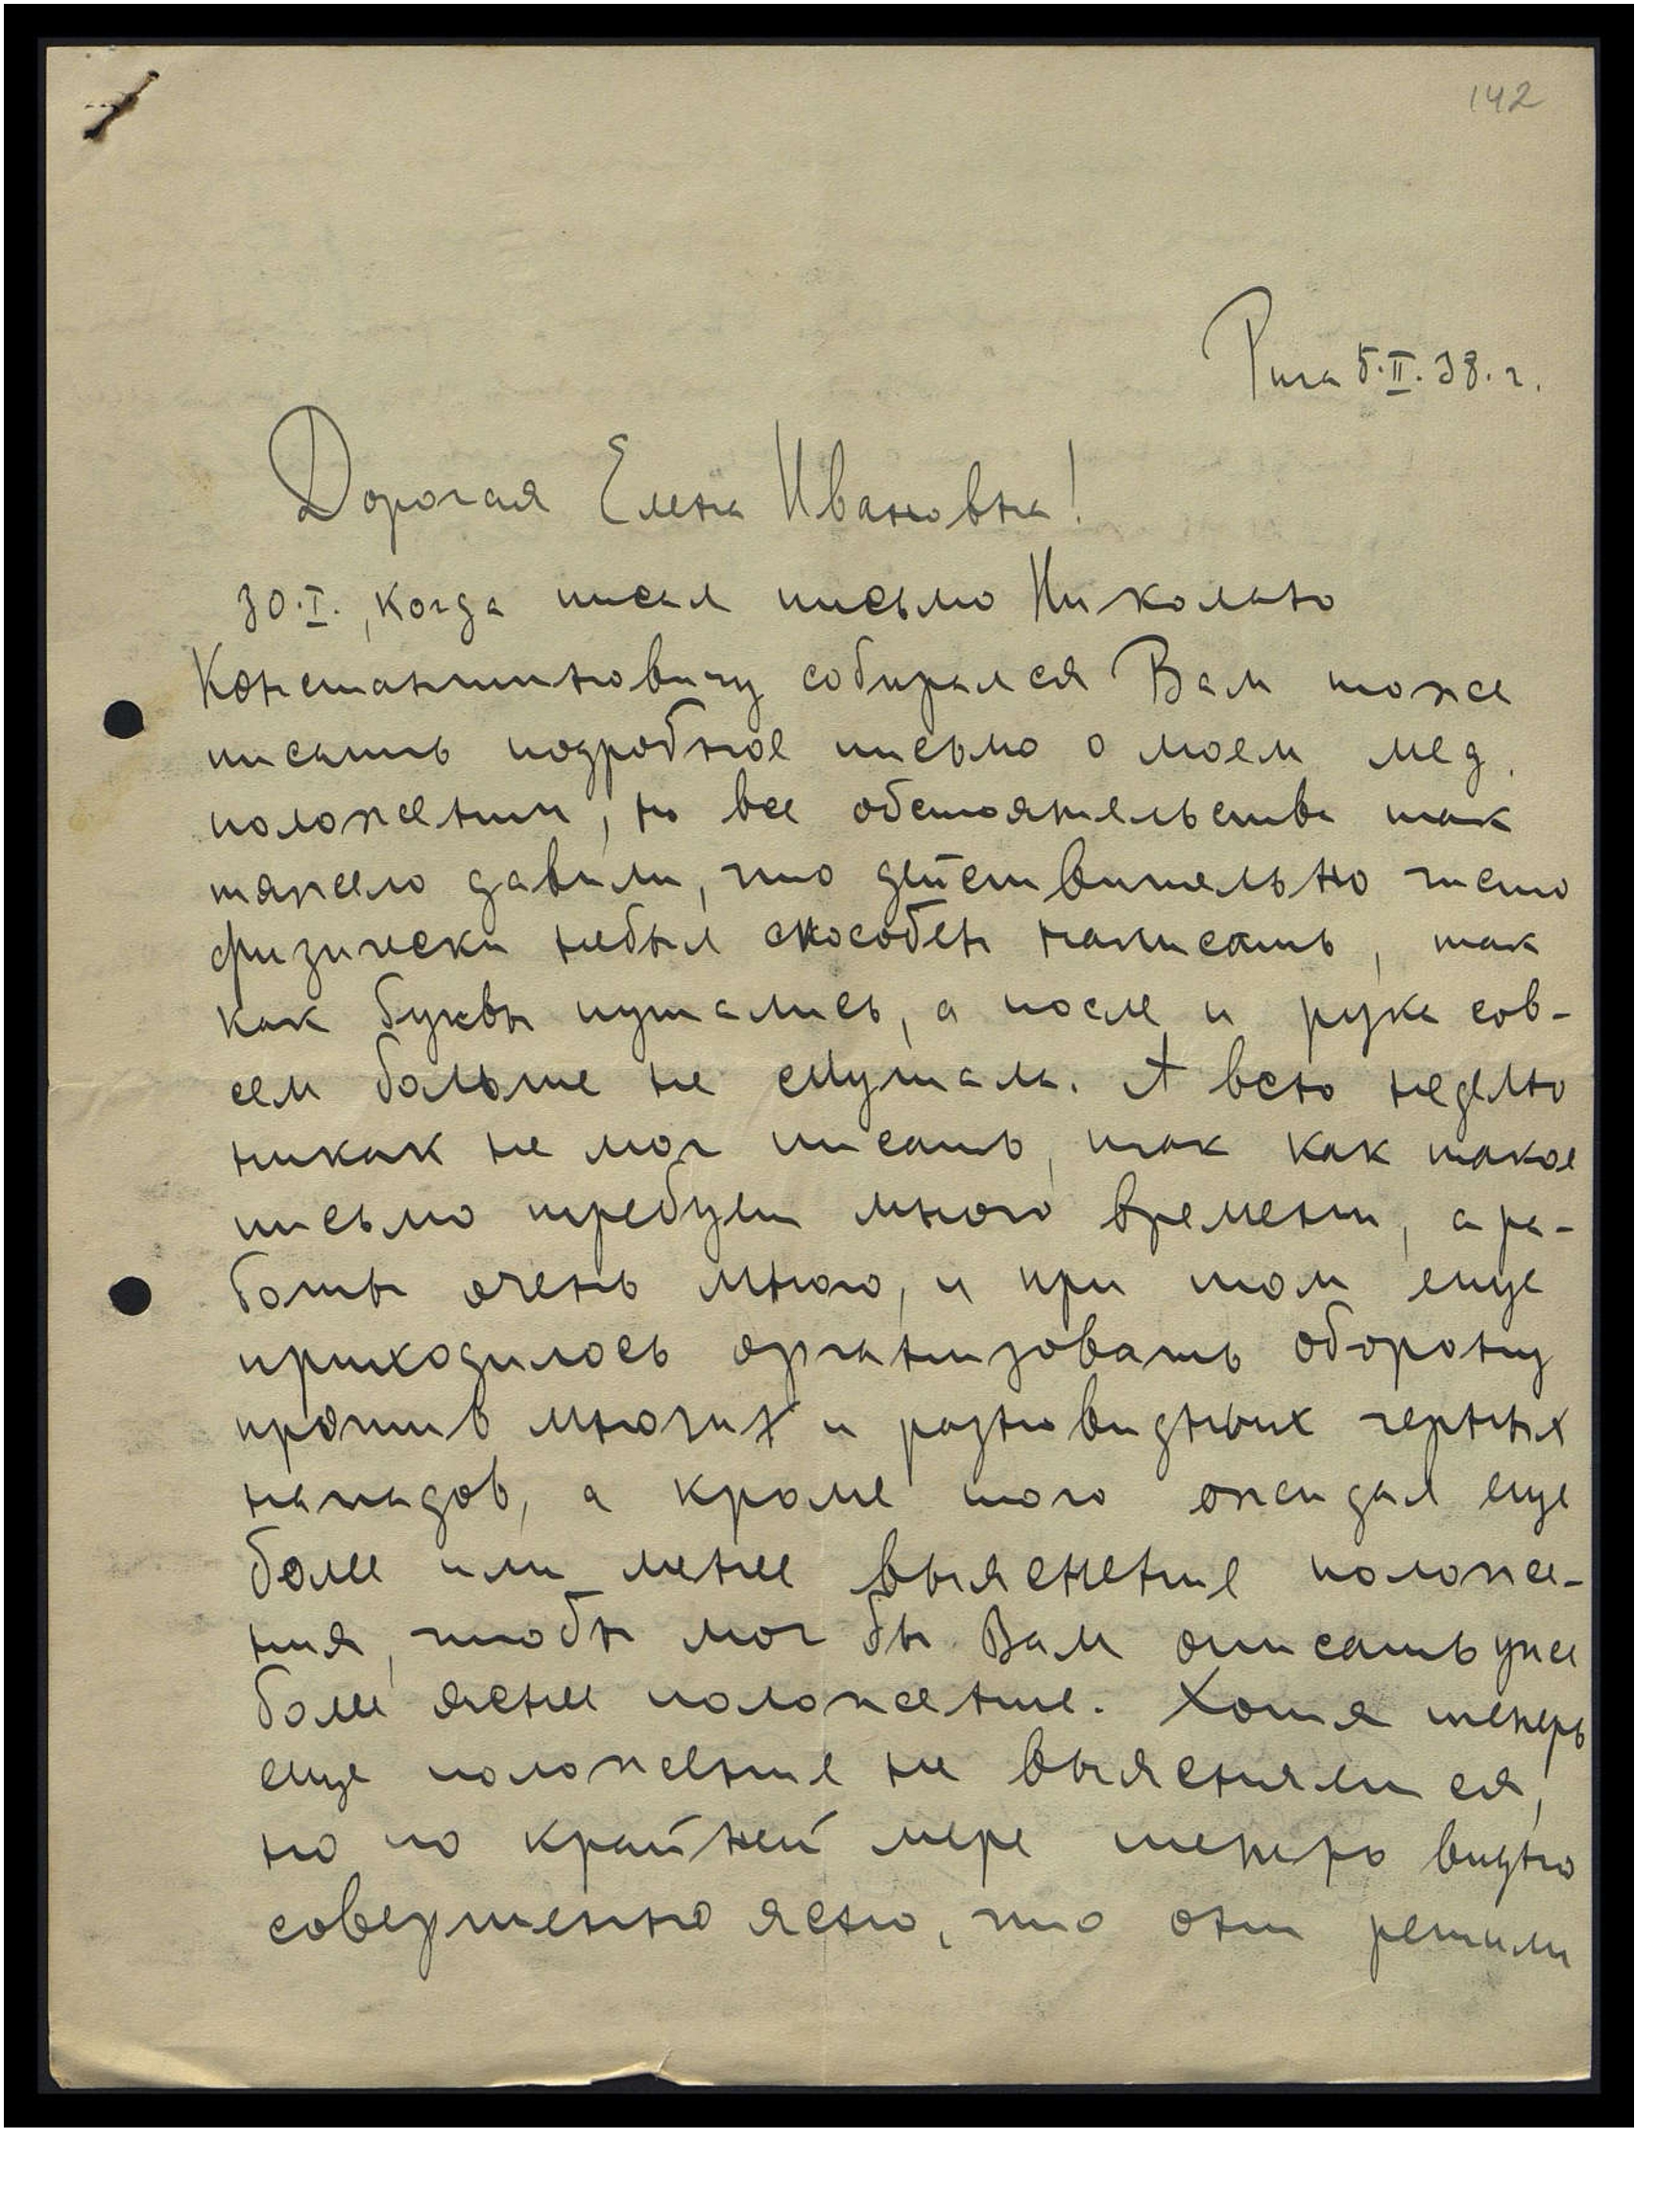 142
Рига 5.II.38.г.
Дорогая Елена Ивановна!
30.I., когда писал письмо Николаю
Константиновичу собирался Вам тоже
писать подробное письмо о моем мед.
положении, но все обстоятельства так
тяжело давили, что действительно чисто
физически небыл способен написать, так
как буквы путались, а после и рука сов-
сем больше не слушала. А всю неделю
никак не мог писать, так как такое
письмо требует много времени, а ра-
боты очень много, и при том еще
приходилось организовать оборону
против многих и разновидных черных
нападов, а кроме того ожидал еще
более или менее выяснение положе-
ния, чтобы мог бы Вам описать уже
более ясное положение. Хотя теперь
еще положение не выяснялися,
но по крайней мере теперь видно
совершенно ясно, что они решили